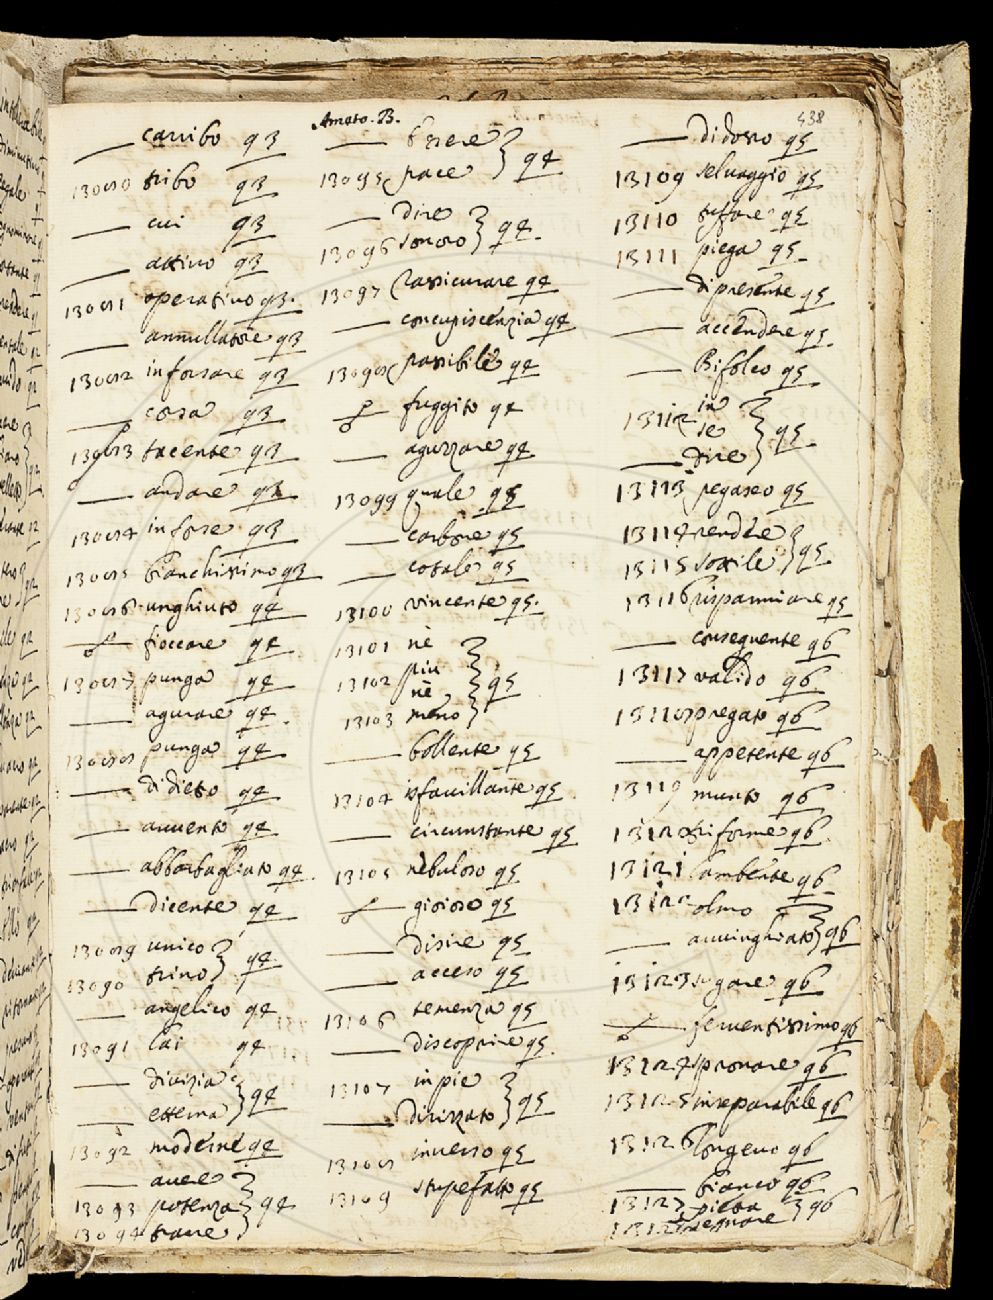 Amato. B.
438
— carribo 93
13080 tribo 93
— cui 93
— attivo 93
13081 operativo 93.
— annullatore 93
13082 inforsare 93
— cosa 93
13083 tacente 93
— andare 93
13084 in forse 93
13085 bianchissimo 93
13086 unghiuto 94
fioccare 94
13087 punga 94
— aguzare 94.
13088 punga 94
— di dieto 94
— avvento 94
— abbarbagliato 94.
— dicente 94
13089 unico
13090 trino } 94
— angelico 94
13091 lai 94
— divizia
— etterna } 94
13092 moderne 94
— avere
13093 potenza } 94
13094 trarre
— bere
13095 pace } 94
— dire
13096 sonoro } 94.
13097 rassicurare 94
— concupiscenzia 94
13098 passibile 94
fuggito 94
— aguzzare 94
13099 quale 95
— carbone 95
— cotale 95
13100 vincente 95.
13101 nè
13102 più
nè } 95
13103 meno
— bollente 95
13104 isfavillante 95
— circunstante 95
13105 nebuloso 95
gioioso 95
— disire 95
— acceso 95
13106 temenza 95
— discoprire 95
13107 in pie
— dirizzato } 95
13108 inverso 95
13109 stupefatto 95
— di dosso 95
13109 selvaggio 95
13110 tuffare 95
13111 piega 95.
— di presente 95
— accendere 95.
— Bifolco 95
13112 in
te } 95.
— dire
13113 pegaseo 95
13114 rendere
13115 sottile } 95
13116 risparmiare 95
— conseguente 96
13117 valido 96
13118 pregato 96
— appetente 96
13119 munto 96
13120 triforme 96
13121 lambente 96
13122 olmo
— avvinghiato } 96
13123 sugare 96
ferventissimo 96
13124 spronare 96
13125 inseparabile 96
13126 longevo 96
— bianco 96
13127 pietra
13128 segnare } 96